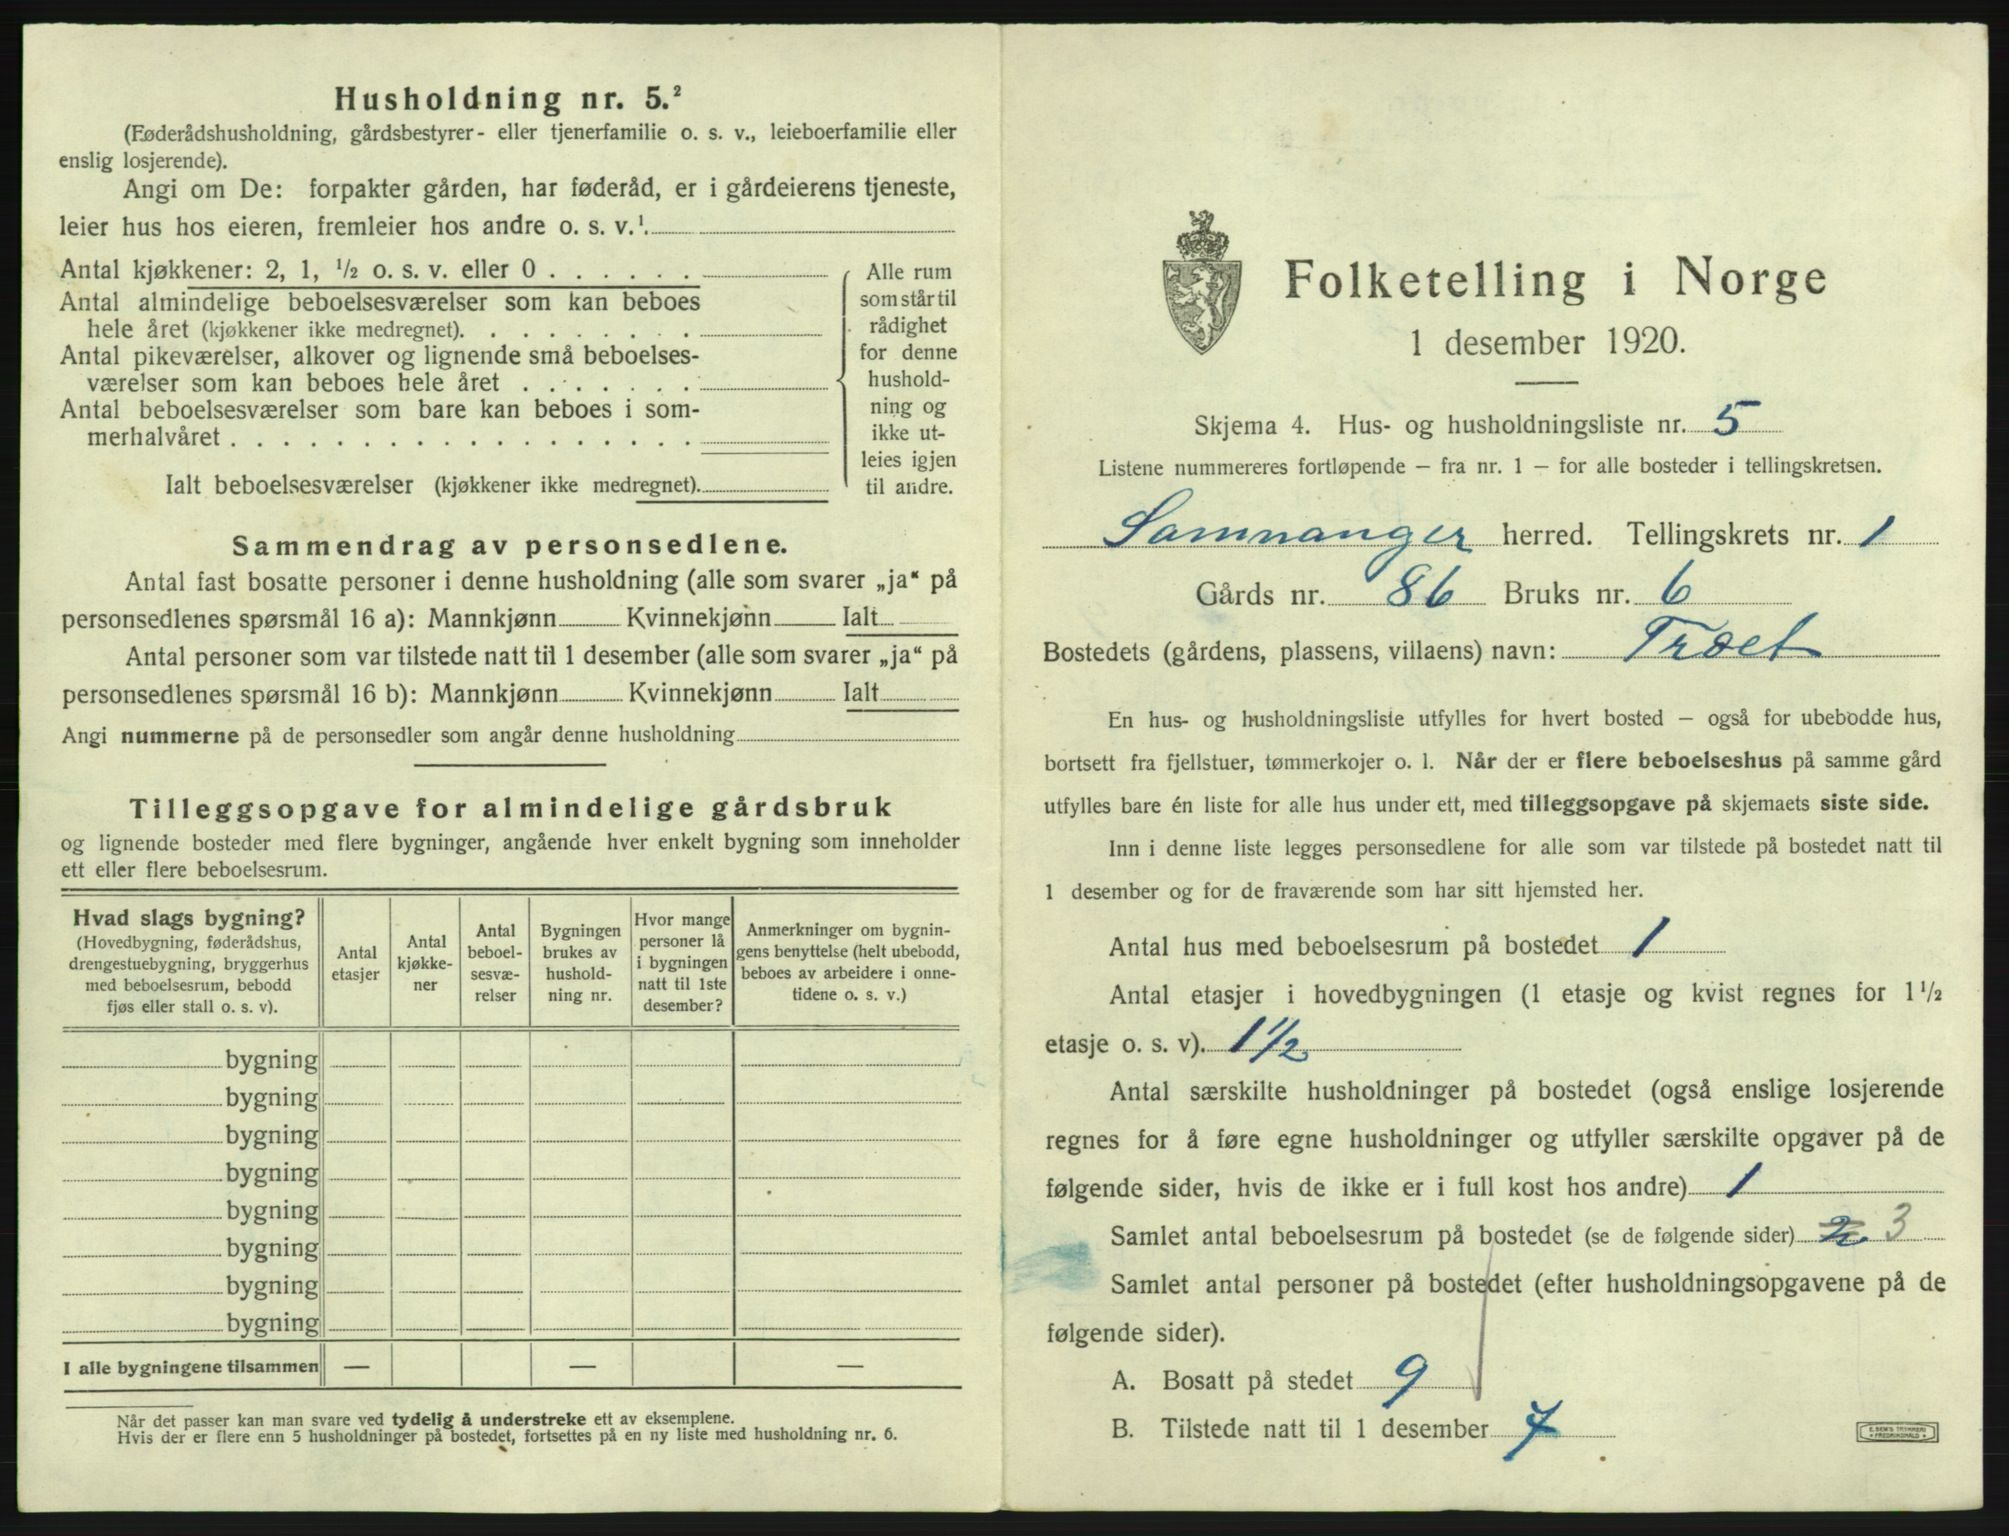 Husholdning nr. 5.²
(Føderådshusholdning, gårdsbestyrer- eller tjenerfamilie o. s. v., leieboerfamilie eller
enslig losjerende).
Angi om De: forpakter gården, har føderåd, er i gårdeierens tjeneste,
leier hus hos eieren, fremleier hos andre o. s. v.¹.
Antal kjøkkener: 2, 1, ½ o. s. v. eller 0 . . . . . .
Antal almindelige beboelsesværelser som kan beboes
hele året (kjøkkener ikke medregnet). . . . . . . .
Antal pikeværelser, alkover og lignende små beboelses-
værelser som kan beboes hele året . . . . . . .
Antal beboelsesværelser som bare kan beboes i som-
merhalvåret . . . . . . . . . . . . . . . . . .
Ialt beboelsesværelser (kjøkkener ikke medregnet).
Alle rum
som står til
rådighet
for denne
hushold-
ning og
ikke ut-
leies igjen
til andre.
Sammendrag av personsedlene.
Antal fast bosatte personer i denne husholdning (alle som svarer „ja“ på
personsedlenes spørsmål 16 a): Mannkjønn Kvinnekjønn Ialt
Antal personer som var tilstede natt til 1 desember (alle som svarer „ja“ på
personsedlenes spørsmål 16 b): Mannkjønn Kvinnekjønn Ialt
Angi nummerne på de personsedler som angår denne husholdning
Tilleggsopgave for almindelige gårdsbruk
og lignende bosteder med flere bygninger, angående hver enkelt bygning som inneholder
ett eller flere beboelsesrum.
Hvad slags bygning?
(Hovedbygning, føderådshus,
drengestuebygning, bryggerhus
med beboelsesrum, bebodd
fjøs eller stall o. s. v).
Antal
etasjer
Antal
kjøkke-
ner
Antal
beboel-
sesvæ-
relser
Bygningen
brukes av
hushold-
ning nr.
Hvor mange
personer lå
i bygningen
natt til 1ste
desember?
Anmerkninger om bygnin-
gens benyttelse (helt ubebodd,
beboes av arbeidere i onne-
tidene o. s. v.)
bygning
bygning
bygning
bygning
bygning
bygning
bygning
bygning
I alle bygningene tilsammen — — —
Når det passer kan man svare ved tydelig å understreke ett av eksemplene.
Hvis der er flere enn 5 husholdninger på bostedet, fortsettes på en ny liste med husholdning nr. 6.
Folketelling i Norge
1 desember 1920.
Skjema 4. Hus- og husholdningsliste nr. 5
Listene nummereres fortløpende — fra nr. 1 — for alle bosteder i tellingskretsen.
Samnanger herred. Tellingskrets nr. 1
Gårds nr. 86 Bruks nr. 6
Bostedets (gårdens, plassens, villaens) navn: Træet
En hus- og husholdningsliste utfylles for hvert bosted — også for ubebodde hus,
bortsett fra fjellstuer, tømmerkojer o. l. Når der er flere beboelseshus på samme gård
utfylles bare én liste for alle hus under ett, med tilleggsopgave på skjemaets siste side.
Inn i denne liste legges personsedlene for alle som var tilstede på bostedet natt til
1 desember og for de fraværende som har sitt hjemsted her.
Antal hus med beboelsesrum på bostedet 1
Antal etasjer i hovedbygningen (1 etasje og kvist regnes for 1½
etasje o. s. v). 1½
Antal særskilte husholdninger på bostedet (også enslige losjerende
regnes for å føre egne husholdninger og utfyller særskilte opgaver på de
følgende sider, hvis de ikke er i full kost hos andre) 1
Samlet antal beboelsesrum på bostedet (se de følgende sider) 2 3
Samlet antal personer på bostedet (efter husholdningsopgavene på de
følgende sider).
A. Bosatt på stedet 9
B. Tilstede natt til 1 desember 7
E. SEM'S TRYKKERI
FREDRIKSHALD